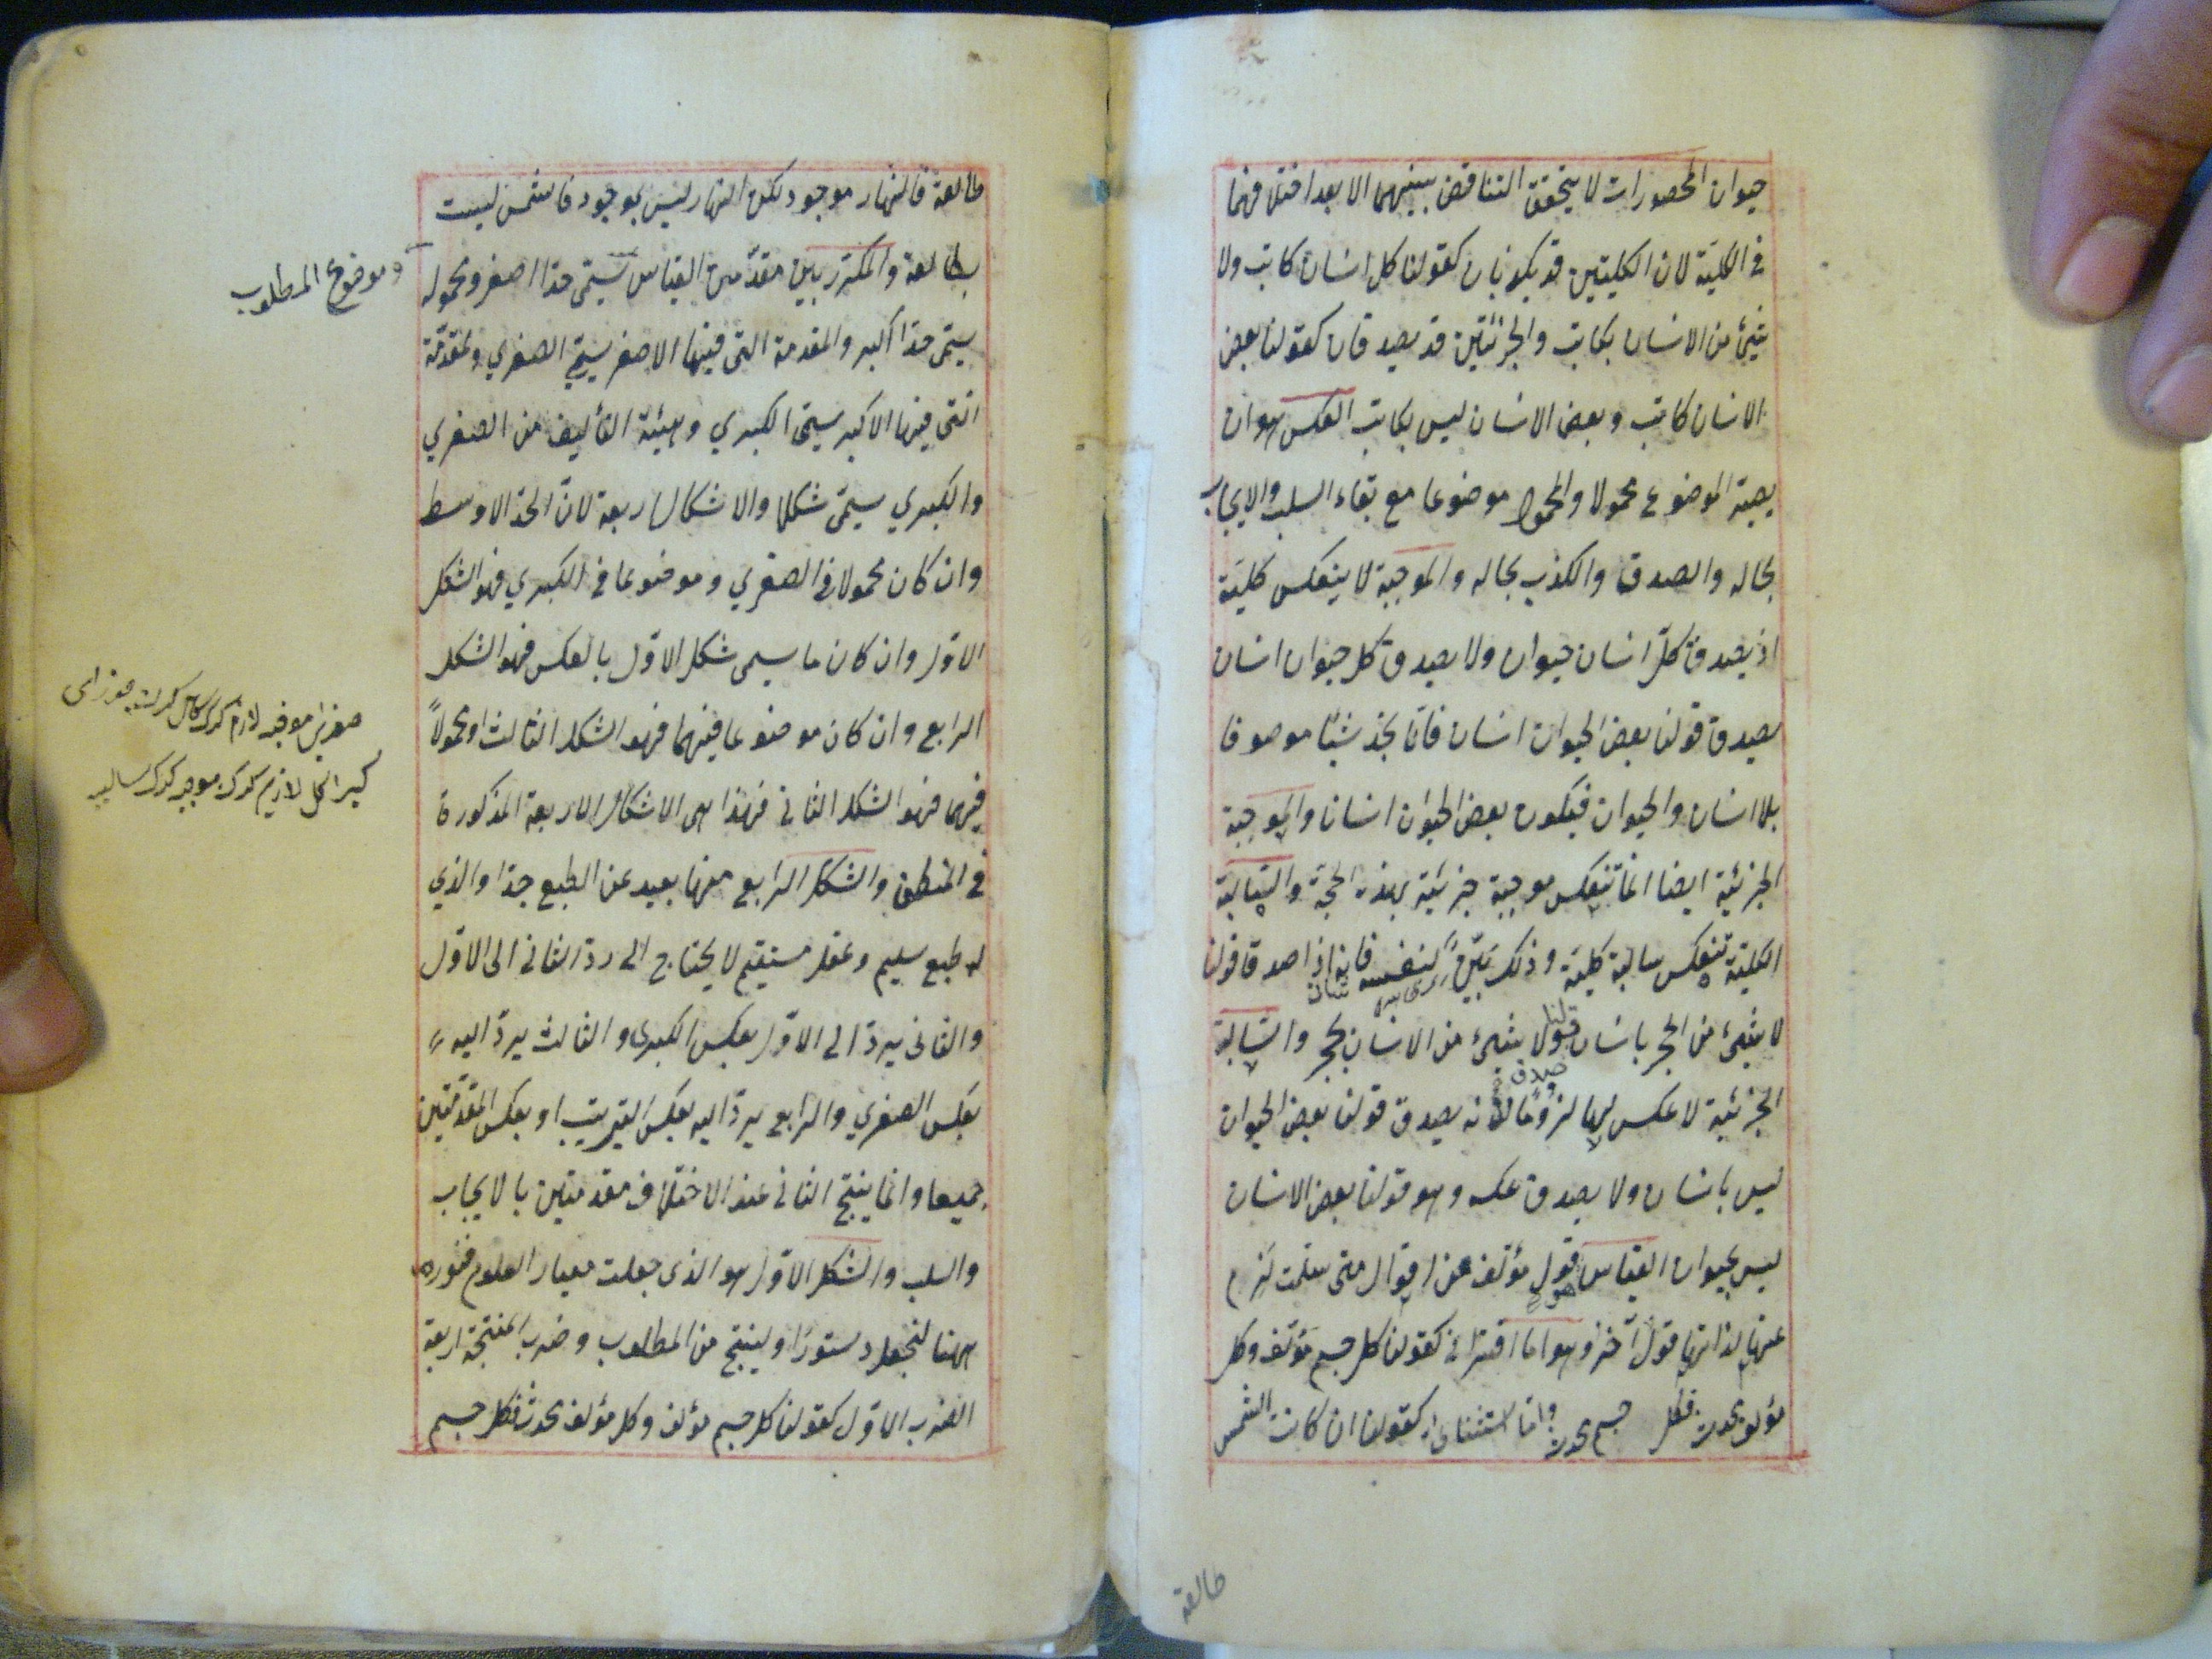 حيوان المحصورات لا يتحقق التناقض بينهما الا بعد اختلافهما
في الكلية لان الكليتين قد يكذبان كقولنا كل انسان كاتب ولا
شيئ من الانسان بكاتب والجزئتين قد يصدقان كقولنا بعض
الانسان كاتب وبعض الانسان ليس بكاتب العكس هو ان
يصير الموضوع محمولا والمحمول موضوعا مع بقاء السلب والايجاب
بحاله والصدق والكذب بحاله والموجبة لا ينعكس كلية
اذ يصدق كل انسان حيوان ولا يصدق كل حيوان انسان
يصدق قولنا بعض الحيوان انسان فانا نجد شيئا موصوفا
بالانسان والحيوان فيكون بعض الحيوان انسانا والموجبة
الجزئية ايضا انما تنعكس موجبة جزئية بهذه الحجة والسالبة
الكلية تنعكس سالبة كلية وذلك بيّن لنفسه فانه اذا صدق قولنا
لا شيئ من الحجر بانسان قولنا لا شيئ من الانسان بحجر والسالبة
صدق
الجزئية لا عكس لها لزوما لانه يصدق قولنا بعض الحيوان
ليس بانسان ولا يصدق عكسه وهو قولنا بعض الانسان
ليس بحيوان القياس قول مؤلف من اقوال متى سلمت لزم
عنها لذاتها قول آخر وهو اما اقتراني كقولنا كل جسم مؤلف وكل
مؤلف محدث فكل جسم محدث واما استثنائي كقولنا ان كانت الشمس
طالعة
طالعة فالنهار موجود لكن النهار ليس بموجود فالشمس ليست
بطالعة والمكرر بين مقدمتى القياس يسمّى حدّا اصغر ومحموله
وموضوع المطلوب
يسمّى حدّا اكبر والمقدمة التى فيها الاصغر يسمّى الصغري والمقدّمة
التى فيها الاكبر يسمّى الكبري وهيئة التأليف من الصغري
والكبري يسمّى شكلا والاشكال اربعة لانّ الحدّ الاوسط
وان كان محمولا في الصغري وموضوعا في الكبري فهو الشكل
الاوّل وان كان ما سيمى شكل الاوّل بالعكس فهو الشكل
الرابع وان كان موضوعا فيهما فهو الشكل الثالث او محمولاً
فيهما فهو الشكل الثاني فهذا هى الاشكال الاربعة المذكورة
في المنطق والشكل الرابع منها بعيد عن الطبع جدّا والذي
له طبع سليم وعقل مستقيم لا يحتاج الى ردّ الثاني الى الاوّل
والثانى يردّ الى الاوّل بعكس الكبرى والثالث يردّ اليه
بعكس الصغري والرّابع يردّ اليه بعكس الترتيب او بعكس المقدّمتين
جميعا وانما ينتج الثانى عند الاختلاف مقدمتين بالايجاب
والسلب والشكل الاوّل هو الذى جعلت معيار العلوم فنورده
ههنا لنجعل دستورا ولينتج من المطلوب وضرب المنتجة اربعة
الضرب الاوّل كقولنا كل جسم مؤلف وكل مؤلف محدث فكل جسم